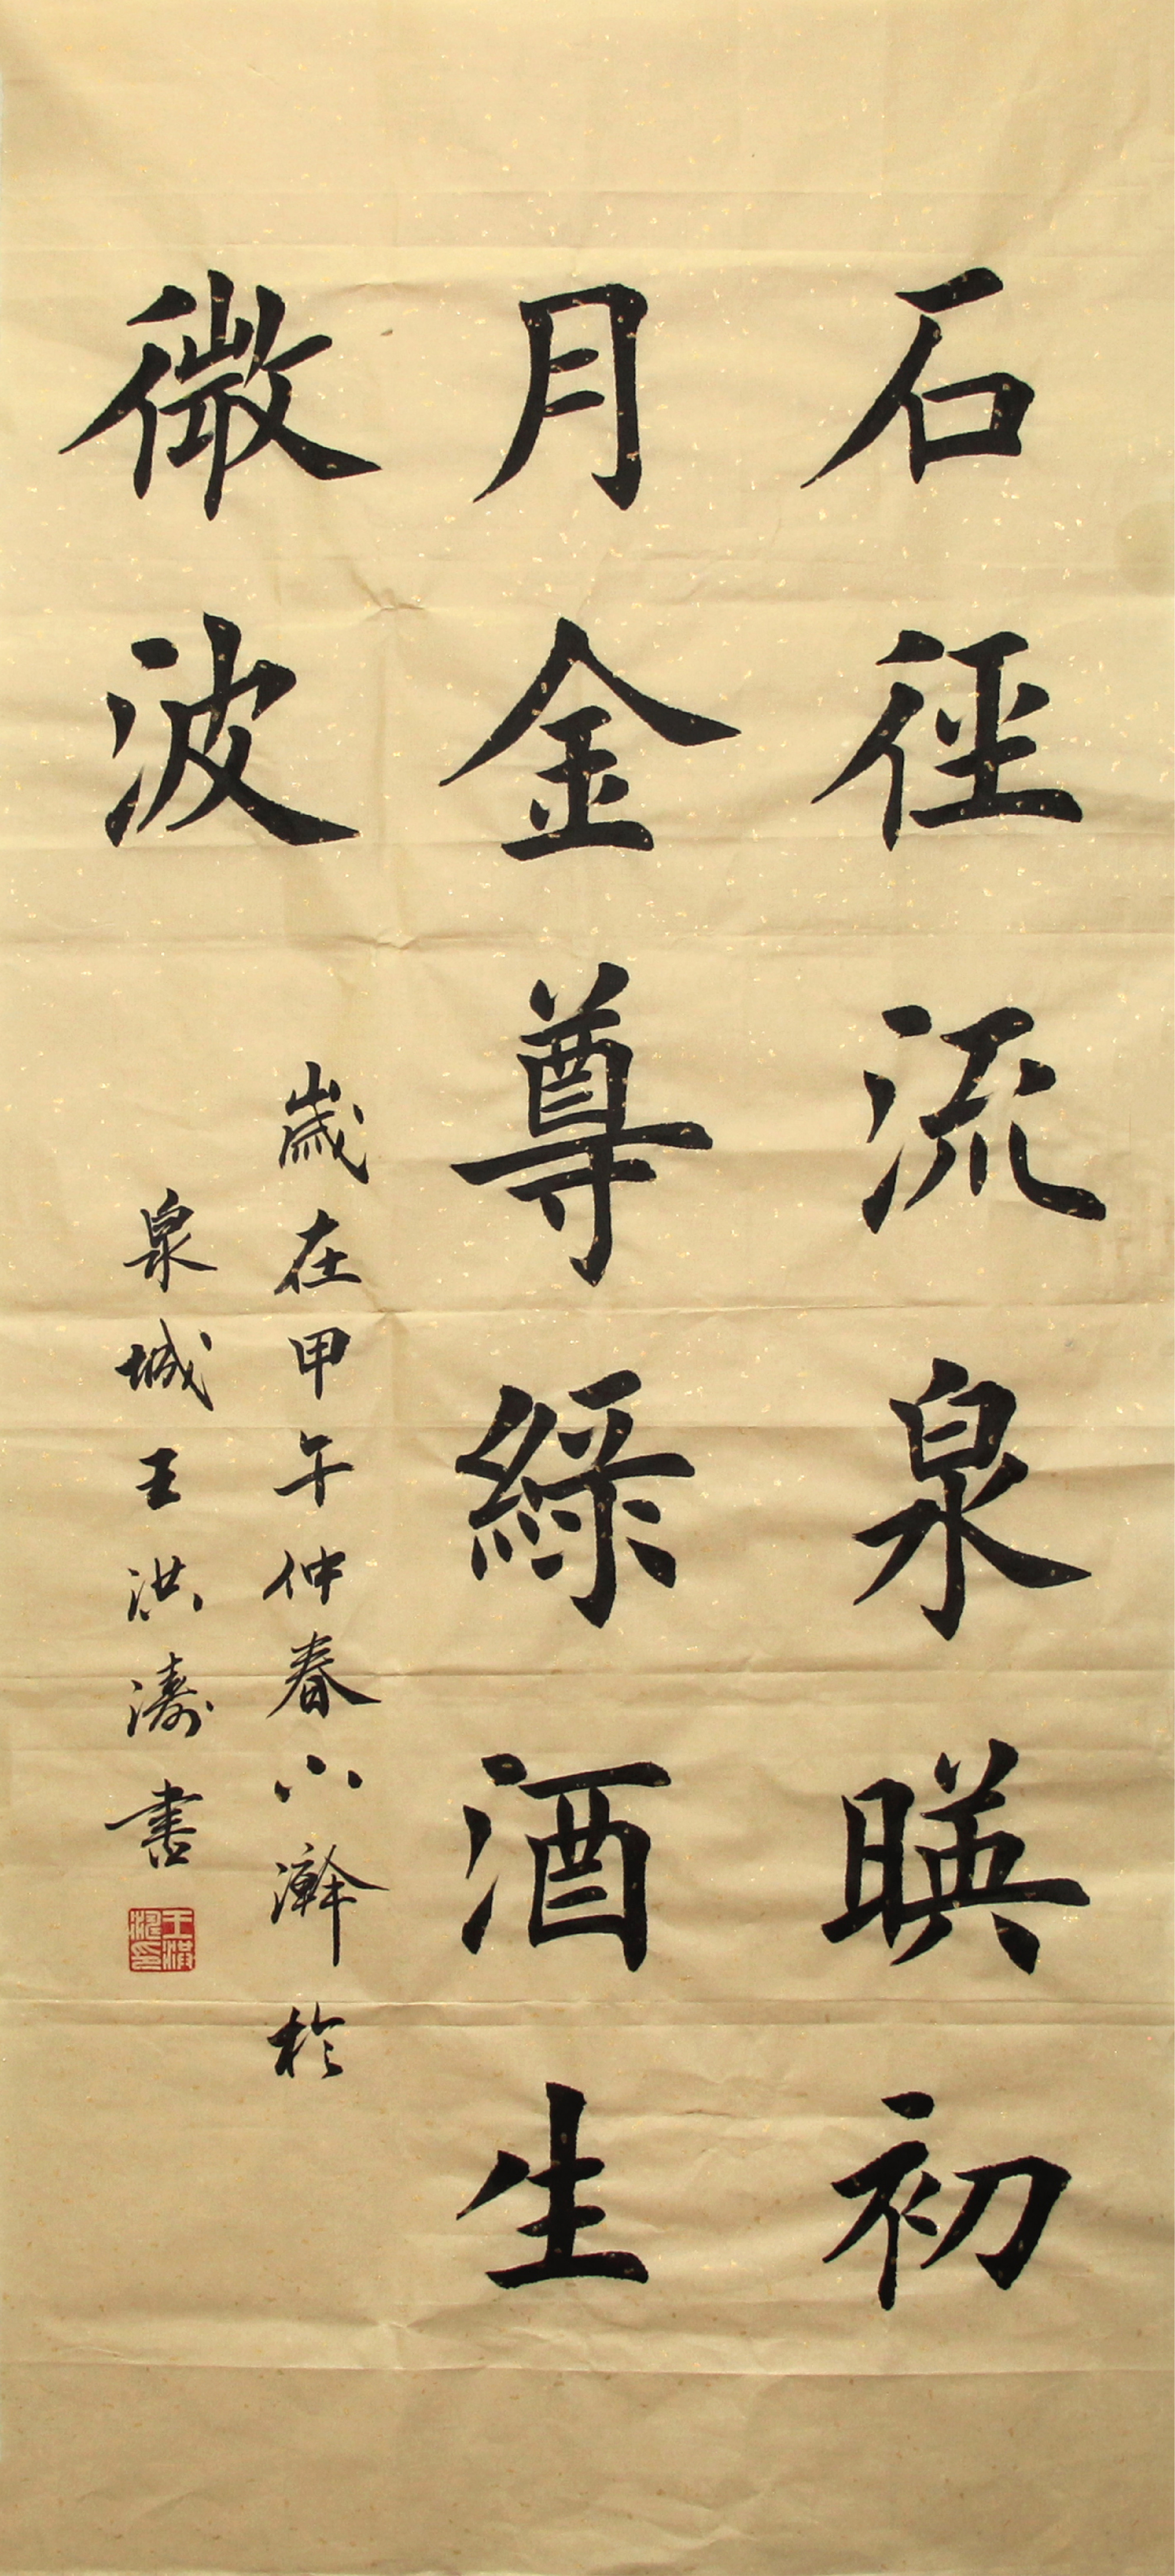 石徑流泉暎初
月金尊綠酒生
微波
歲在甲午仲春小澣於
泉城王洪濤書
王洪濤印